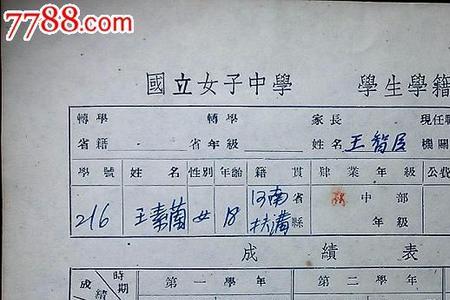 7788.com
國立女子中學 學生學籍
轉學 轉學 家長 現任職
省籍 省年級 姓名 王智民 機關
學號 姓名 性別 年齡 籍貫 肄業年級 公費
216 王素蘭 女 18 河南省扶溝縣 中部 年級
成績表
時期 第一學年 第二學年
成績